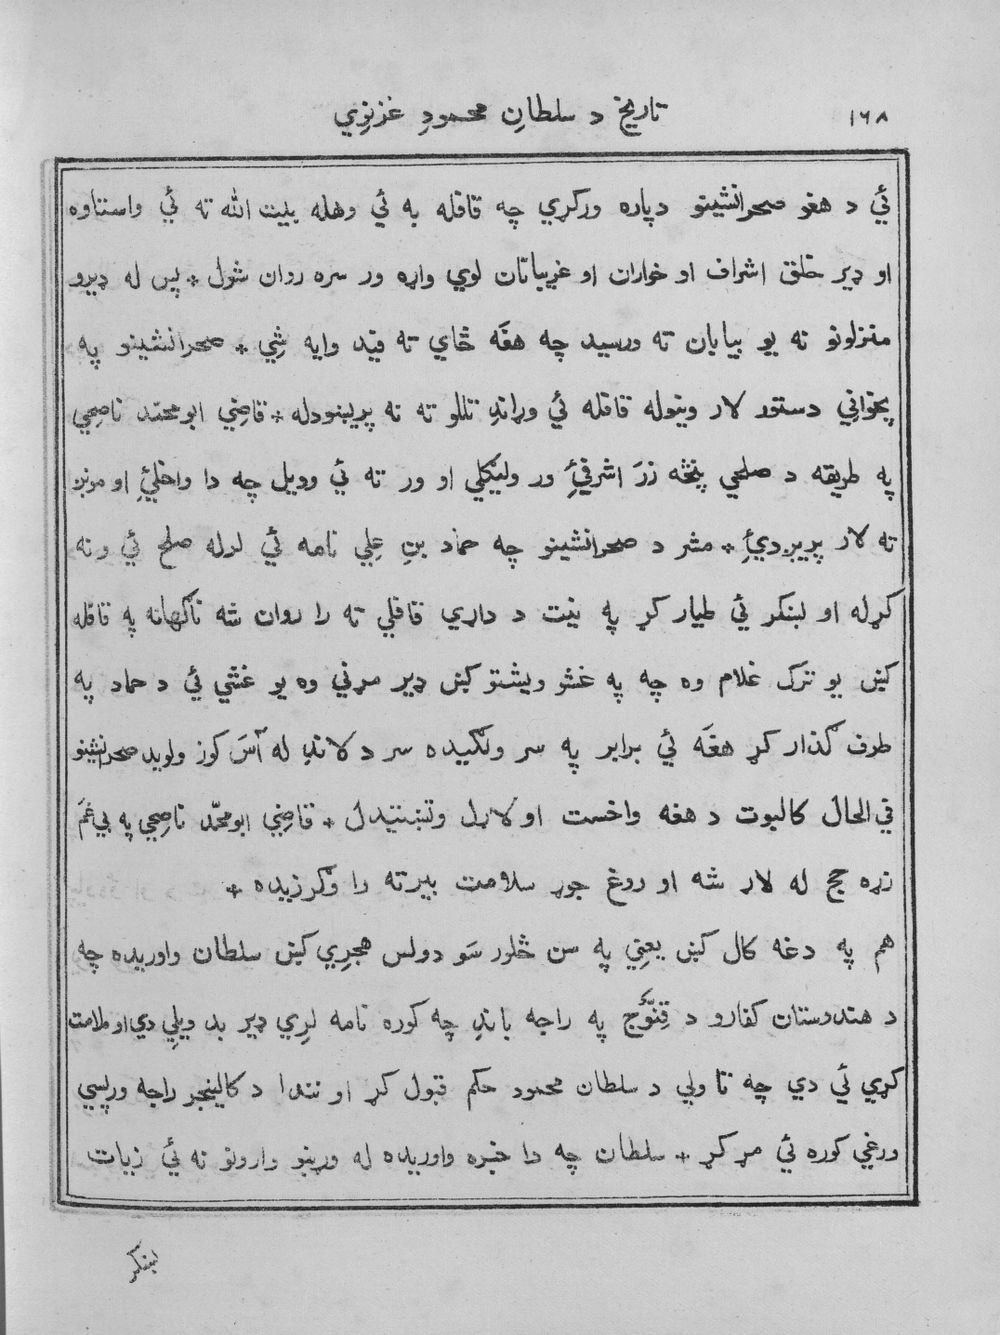 ١٦٨
تاريخ د سلطانِ محمودِ غزنوِي
ئي د هغو صحرانشينو دپاره ورکړي چه قافله به ئي وهله بيت الله ته ئي واستاوه
او ډير خلق اشراف او خواران او غريبانان لوي واړه ور سره روان شول * پس له ډيرو
منزلونو نه يو بيابان ته ورسيد چه هغَه ځاي ته فيد وايه شِي * صحرانشينو په
پخواني دستور لار ونيوله قافله ئي وړاندِ تللو ته نه پريښودله * قاضِي ابو محمّد ناصِحِي
په طريقه د صلحي پنځه زرَ اشرفئِ ور وليګلي او ور ته ئي وويل چه دا واخلئِ او مونږ
ته لار پريږدئ * مشر د صحرانشينو چه حماد بنِ عِلي نامه ئي لرله صلح ئي ونه
کړله او لښکر ئي طيار کړ په نيت د داړي قافلي ته را روان شه ناګهانه په قافله
کښ يو ترک غلام وه چه په غشو ويشتو کښ ډير مړني وه يو غشي ئي د حماد په
طرف ګذار کړ هغَه ئي برابر په سر ولګيده سر د لاندِ له آسَ کوز ولويد صحرانشينو
في الحال کالبوت د هغه واخست او لاړل وتښتيدل * قاضِي ابو محمّد ناصِحِي په بي غَمَ
زړه حج له لاړ شه او روغ جوړ سلامت بيرته را وګرزيده *
هم په دغه کال کښ يعنِي په سن څلور سَو دولس هجرِي کښ سلطان واوريده چه
د هندوستان کفارو د قِنّوَج په راجه باندِ چه کوره نامه لرِي ډير بد ويلِي دي او ملامت
کړي ئي دي چه تا ولي د سلطان محمود حکم قبول کړ او نندا د کالينجر راجه ورپسي
ورغي کوره ئي مړ کړ * سلطان چه دا خبره واوريده له وړنبو وارونو نه ئي زيات
لښکر